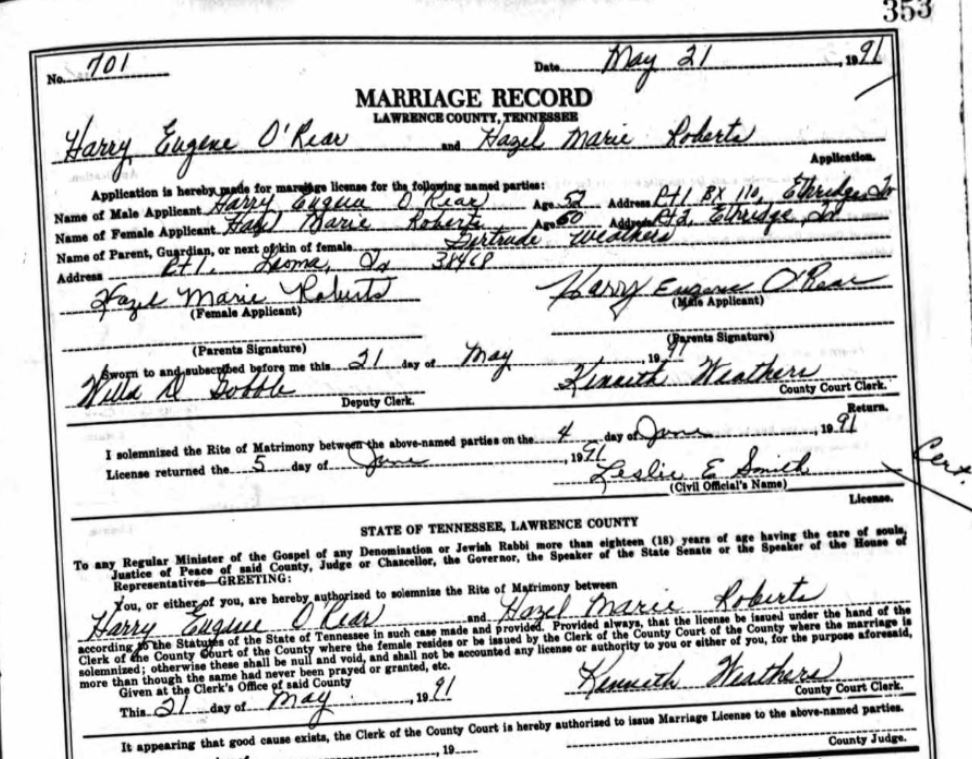 353
No. 701 Date May 21, 1991
MARRIAGE RECORD
LAWRENCE COUNTY, TENNESSEE
Harry Eugene O'Rear and Hazel Marie Roberts
Application.
Application is hereby made for marriage license for the following named parties:
Name of Male Applicant Harry Eugene O'Rear Age 52 Address Rt 1 BX 110, Ethridge, Tn
Name of Female Applicant Hazel Marie Roberts Age 50 Address Rt 2, Ethridge, Tn
Name of Parent, Guardian, or next of kin of female Gertrude Weathers
Address Rt 1. Leoma, Tn 38468
Hazel Marie Roberts Harry Eugene O'Rear
(Female Applicant) (Male Applicant)
(Parents Signature) (Parents Signature)
Sworn to and subscribed before me this 21 day of May, 1991
Willa D Gobble Kenneth Weathers
Deputy Clerk. County Court Clerk.
Return.
I solemnized the Rite of Matrimony between the above-named parties on the 4 day of June, 1991
License returned the 5 day of June, 1991
Leslie E Smith
(Civil Official's Name)
License.
STATE OF TENNESSEE, LAWRENCE COUNTY
To any Regular Minister of the Gospel of any Denomination or Jewish Rabbi more than eighteen (18) years of age having the care of souls,
Justice of Peace of said County, Judge or Chancellor, the Governor, the Speaker of the State Senate or the Speaker of the House of
Representatives—GREETING:
You, or either of you, are hereby authorized to solemnize the Rite of Matrimony between
Harry Eugene O'Rear and Hazel Marie Roberts
according to the Statutes of the State of Tennessee in such case made and provided. Provided always, that the license be issued under the hand of the
Clerk of the County Court of the County where the female resides or be issued by the Clerk of the County Court of the County where the marriage is
solemnized; otherwise these shall be null and void, and shall not be accounted any license or authority to you or either of you, for the purpose aforesaid,
more than though the same had never been prayed or granted, etc.
Given at the Clerk's Office of said County
This 21 day of May, 1991 Kenneth Weathers
County Court Clerk.
It appearing that good cause exists, the Clerk of the County Court is hereby authorized to issue Marriage License to the above-named parties.
, 19
County Judge.